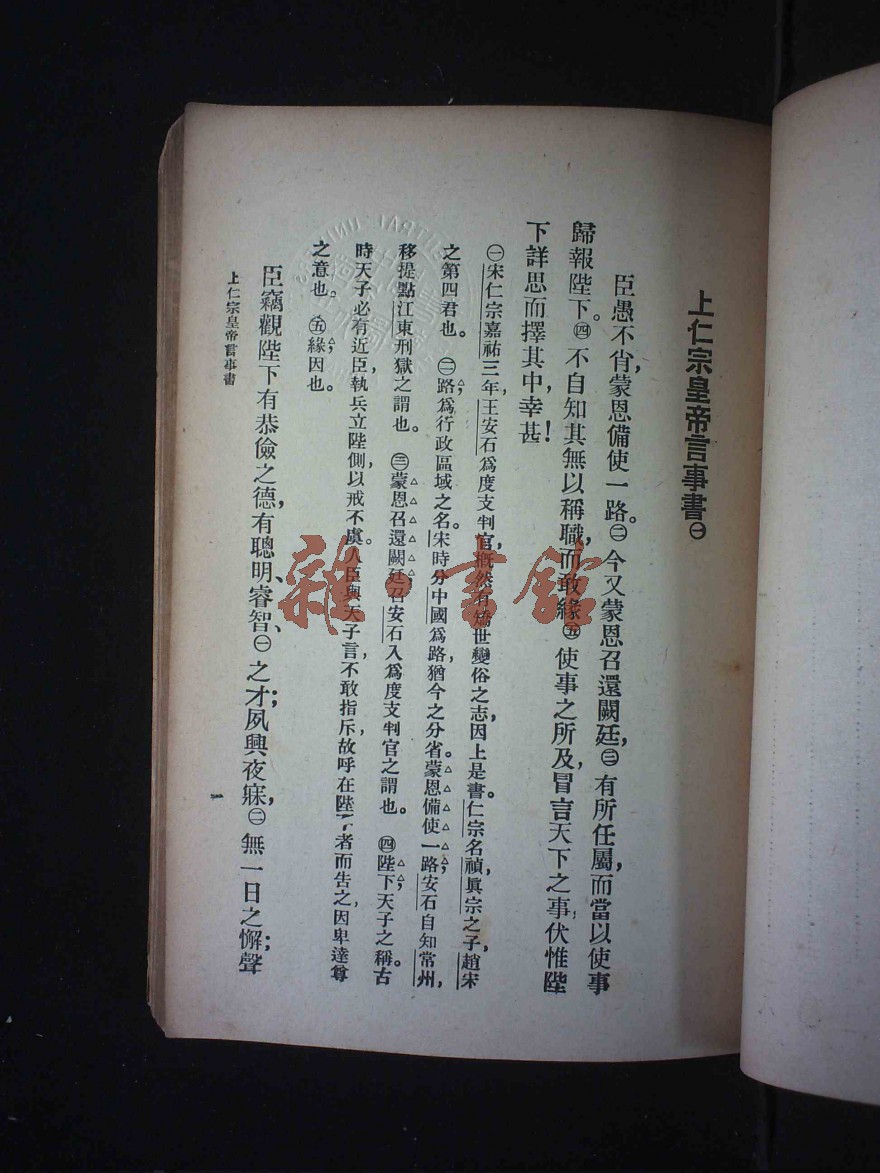 上仁宗皇帝言事書㊀
臣愚不肖,蒙恩備使一路。㊁今又蒙恩召還闕廷,㊂有所任屬,而當以使事
歸報陛下。㊃不自知其無以稱職,而敢緣㊄使事之所及,冒言天下之事,伏惟陛
下詳思而擇其中,幸甚!
㊀宋仁宗嘉祐三年,王安石爲度支判官,慨然有矯世變俗之志,因上是書。仁宗名禎,眞宗之子,趙宋
之第四君也。㊁路,爲行政區域之名。宋時分中國爲路,猶今之分省。蒙恩備使一路,安石自知常州,
移提點江東刑獄之謂也。㊂蒙恩召還闕廷,召安石入爲度支判官之謂也。㊃陛下,天子之稱。古
時天子必有近臣執兵立陛側,以戒不虞。人臣與天子言,不敢指斥,故呼在陛下者而告之,因卑達尊
之意也。㊄緣,因也。
臣竊觀陛下有恭儉之德,有聰明睿智、㊀之才;夙興夜寐,㊁無一日之懈;聲
上仁宗皇帝言事書
一
雜·書館